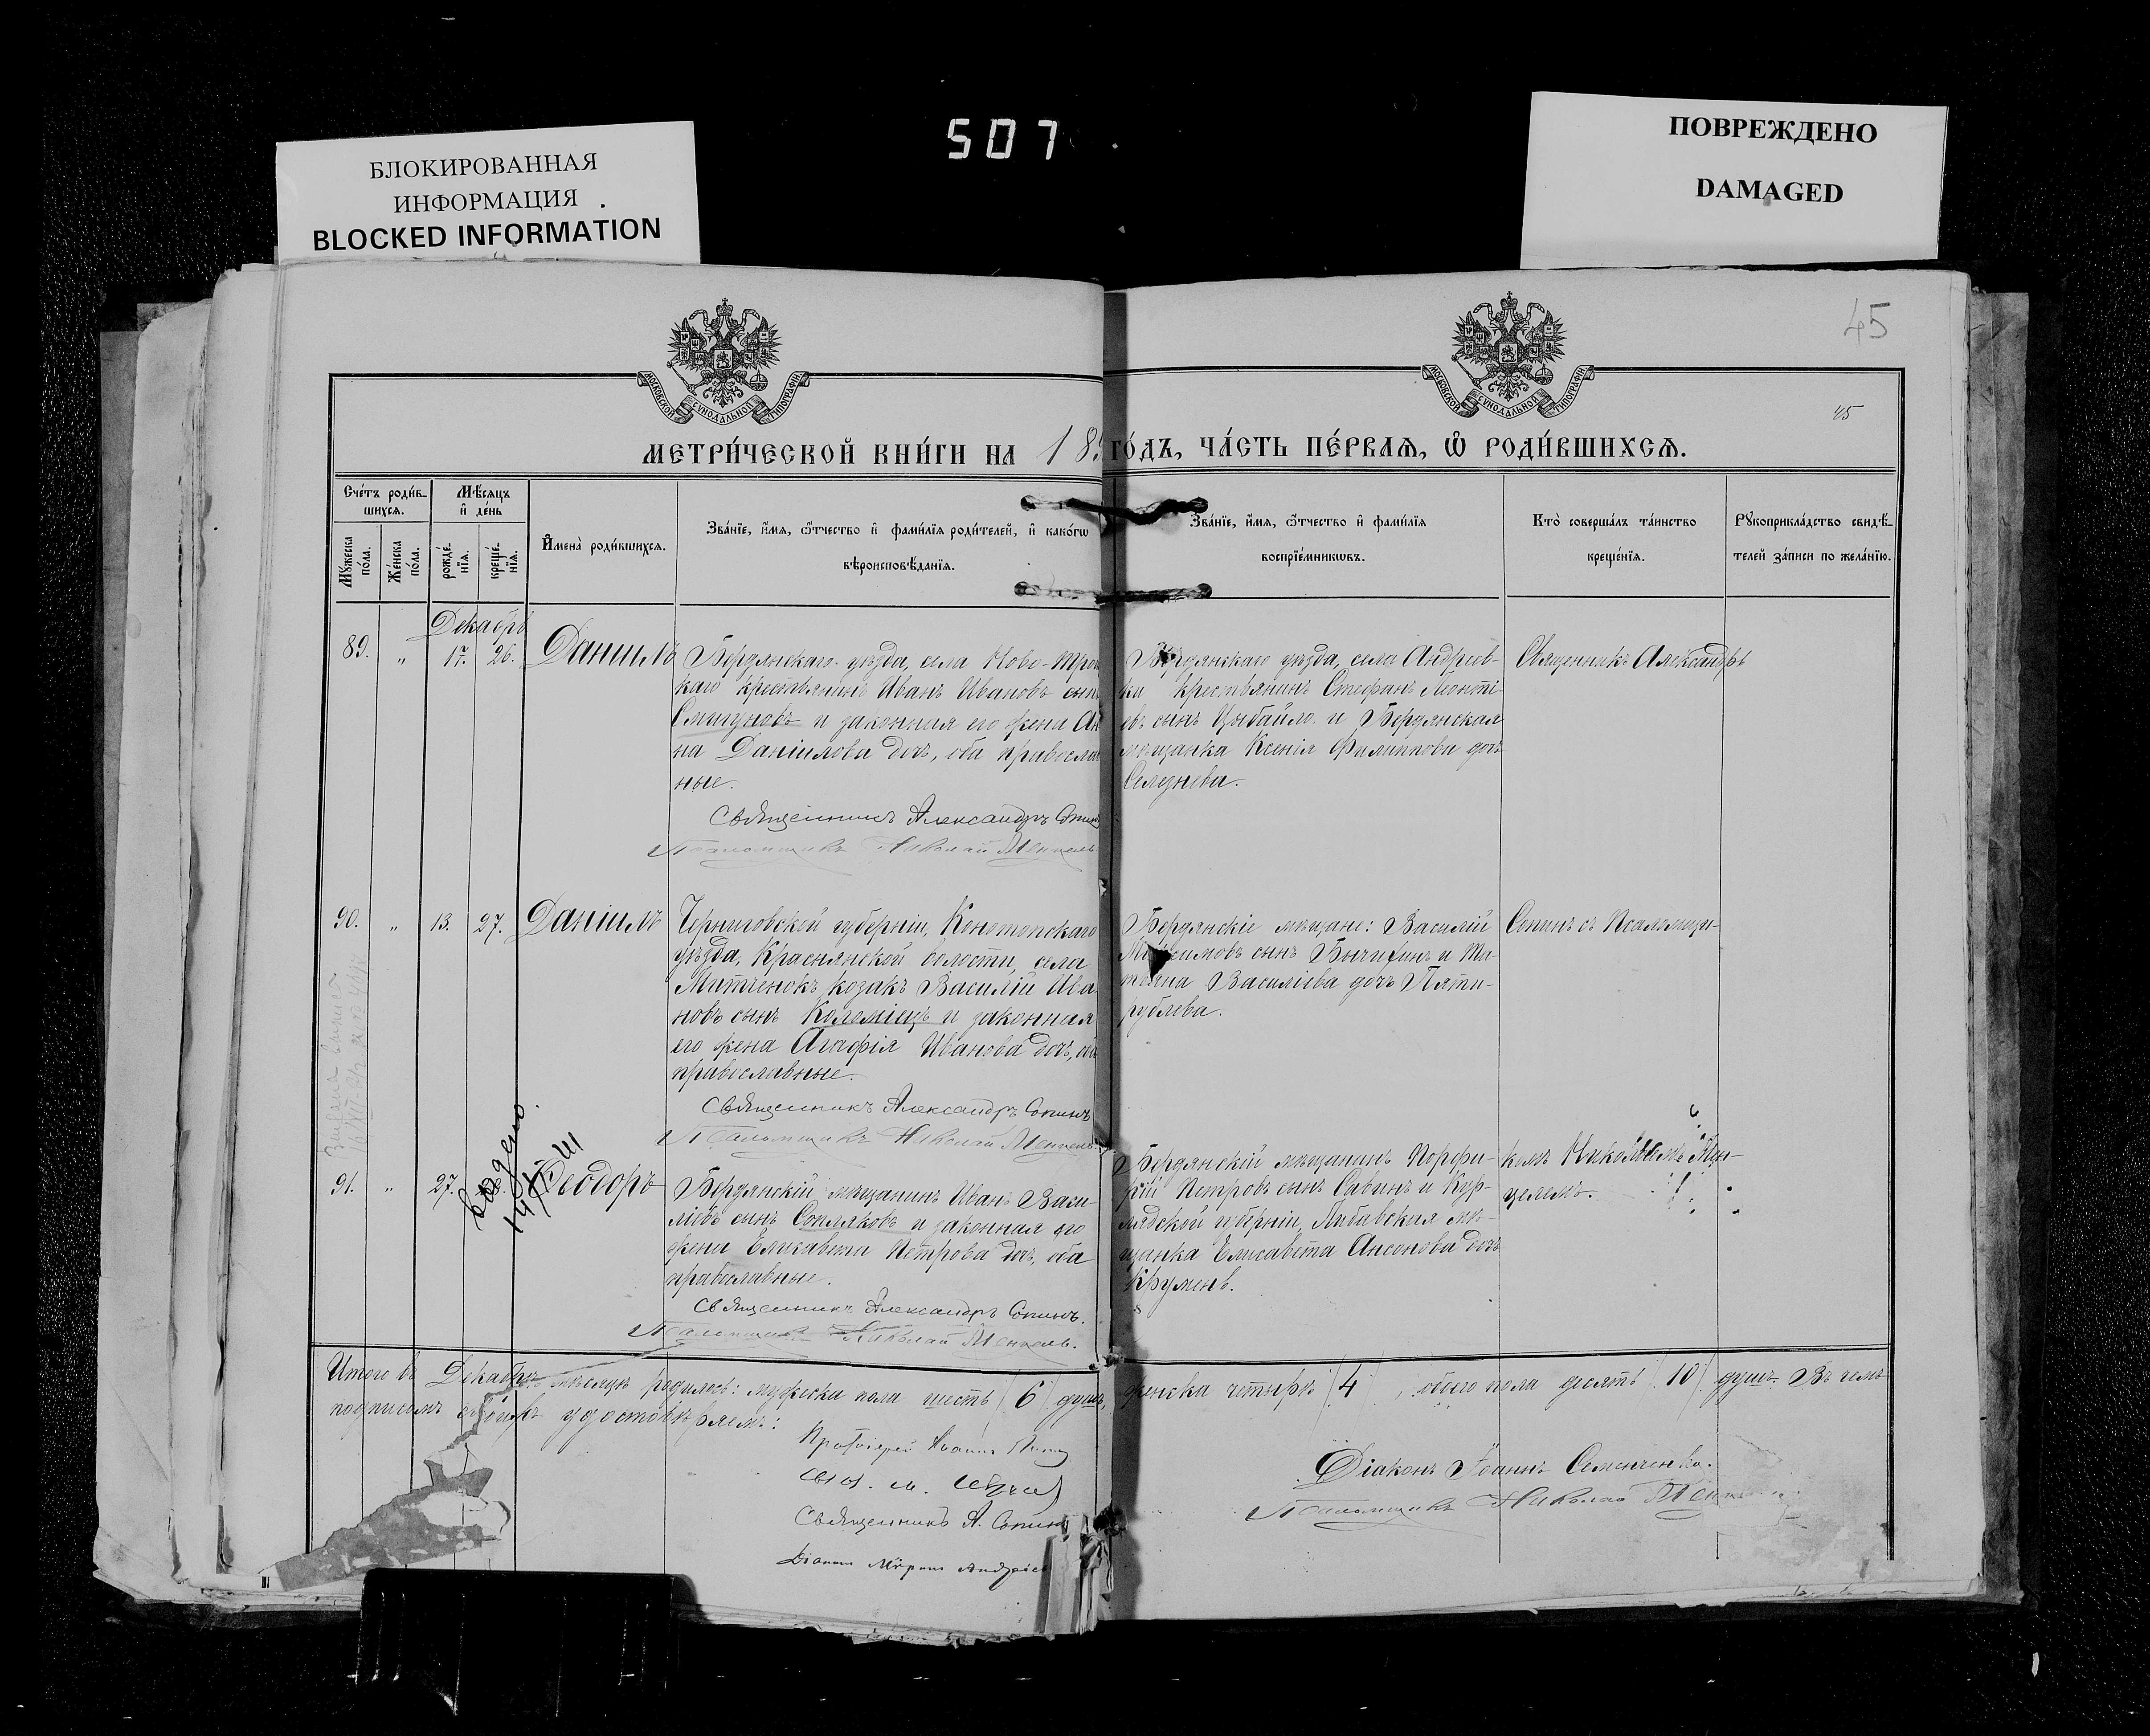 БЛОКИРОВАННАЯ
ИНФОРМАЦИЯ
BLOCKED INFORMATION
507
ПОВРЕЖДЕНО
DAMAGED
45
45
МОСКОВСКОЙ СѴНОДАЛЬНОЙ ТИПОГРАФІИ
МОСКОВСКОЙ СѴНОДАЛЬНОЙ ТИПОГРАФІИ
МЕТРИ́ЧЕСКОЙ КНИ́ГИ НА 18 ГО́ДЪ, ЧА́СТЬ ПЕ́РВАѦ, Ѡ҆ РОДИ́ВШИХСѦ.
Сче́тъ роди́в-
шихсѧ.
Мѣ́сѧцъ
и҆ де́нь
Мꙋ́жеска
по́ла.
Же́нска
по́ла.
рожде́-
нїѧ.
креще́-
нїѧ.
И҆мена̀ роди́вшихсѧ.
Зва́нїе, и҆́мѧ, ѻ҆́тчество и҆ фами́лїѧ роди́телей, и҆ како́гѡ
вѣроисповѣ́данїѧ.
Зва́нїе, и҆́мѧ, ѻ҆́тчество и҆ фами́лїѧ
воспрїе́мникѡвъ.
Кто̀ соверша́лъ та́инство
креще́нїѧ.
Рꙋкоприкла́дство свидѣ́-
телей за́писи по жела́нїю.
Декабрь
89. „ 17. 26. Даніилъ
Бердянскаго уѣзда, села Ново-Трои
каго крестьянинъ Иванъ Ивановъ сынъ
Смигуновъ и законная его жена Ан
на Даніилова дочь, оба правосла
ные.
Священникъ Александръ Сопинъ
Псаломщикъ Николай Менцель
Бердянскаго уѣзда, села Андреев-
ки крестьянинъ Стефанъ Леонті-
евъ сынъ Цыбайло и Бердянская
мѣщанка Ксенія Филиппова дочь
Селезнева.
Священникъ Александръ
90. „ 13. 27. Даніилъ
Черниговской губерніи, Конотопскаго
уѣзда, Краснянской волости, села
Митченокъ козакъ Василій Ива
новъ сынъ Коломіецъ и законная
его жена Агафія Иванова дочь, оба
православные.
Священникъ Александръ Сопинъ
Псаломщикъ Николай Менцель.
Бердянскіе мѣщане: Василій
Максимовъ сынъ Бычихинъ и Та-
тьяна Василіева дочь Пяти-
рублева.
Сопинъ съ Псаломщи-
91. „ 27. Ѳеодоръ
Бердянскій мѣщанинъ Иванъ Васи-
ліевъ сынъ Сопляковъ и законная его
жена Елисавета Петрова дочь, оба
православные.
Священникъ Александръ Сопинъ.
Псаломщикъ Николай Менцель.
Бердянскій мѣщанинъ Порфи-
рій Петровъ сынъ Савинъ и Кур-
ляндской губерніи, Либавская мѣ-
щанка Елисавета Ансонова дочь
Круменъ.
комъ Николаемъ Мен-
целемъ.
Итого въ Декабрѣ мѣсяцѣ родилось: мужеска пола шесть /6/ душъ, женска четыре /4/, обоего пола десять /10/ душъ. Въ чемъ
подписомъ своимъ удостовѣряемъ:
Протоіерей Іоаннъ
Священникъ А. Сопинъ
Діаконъ Андреев
Діаконъ Іоаннъ Семенченко.
Псаломщикъ Николай Мен